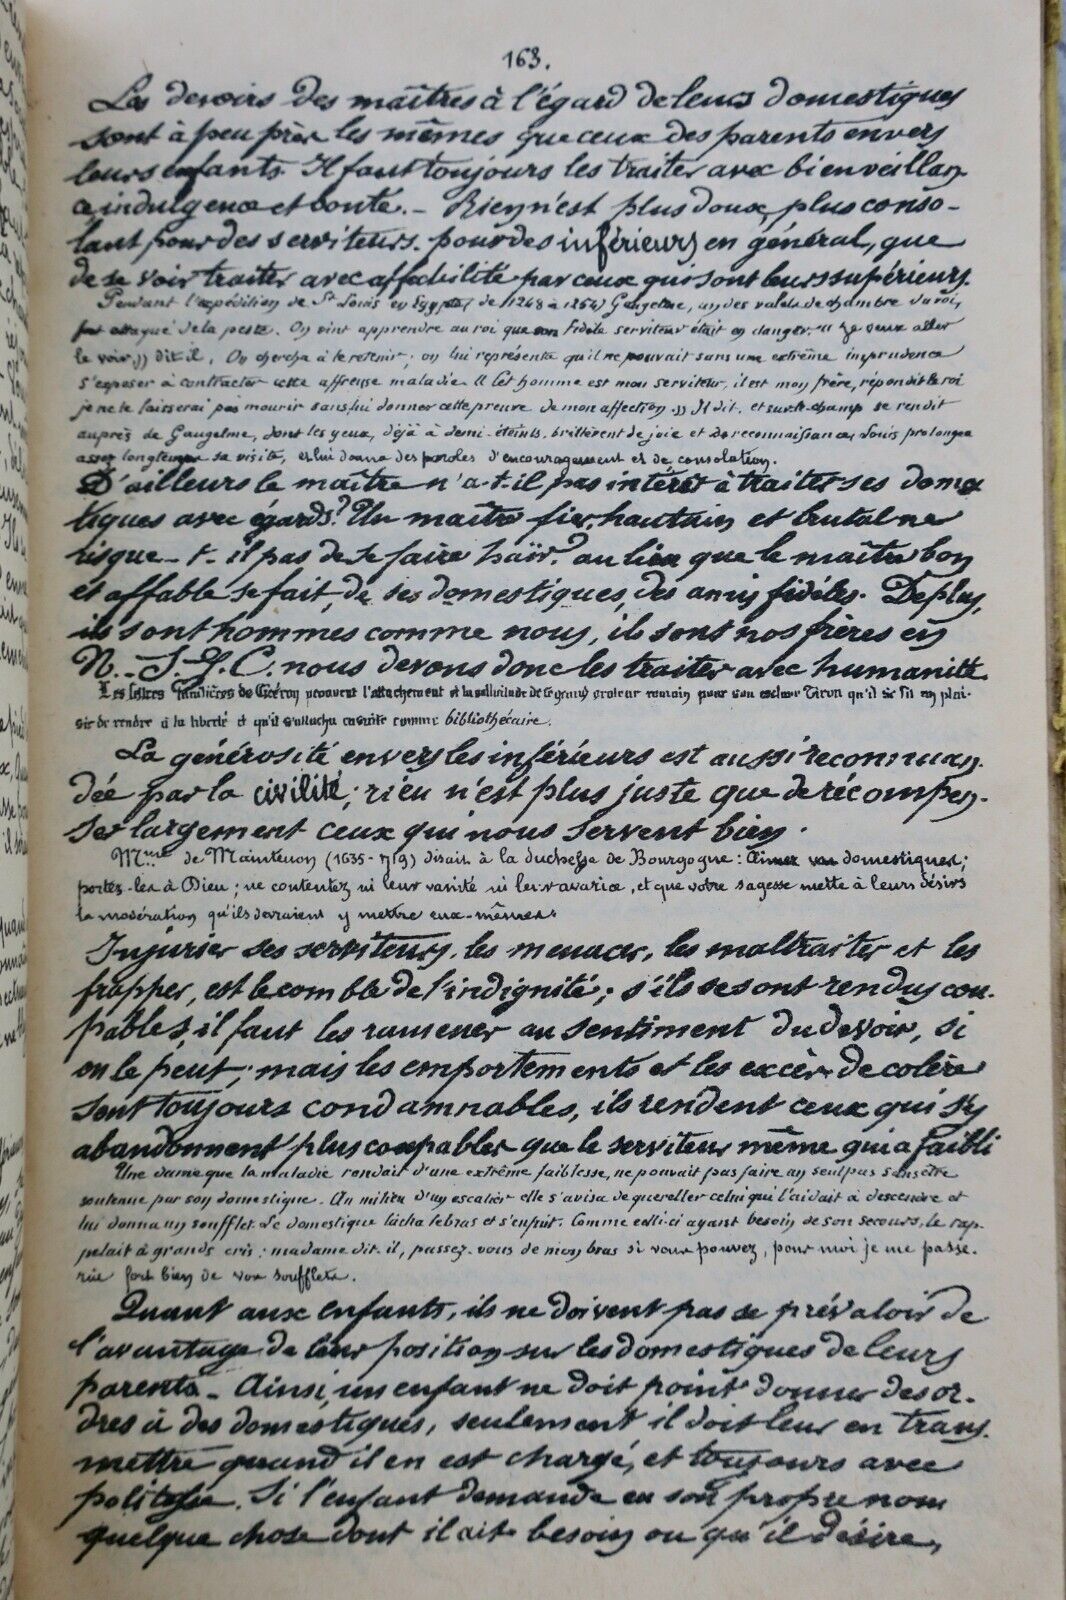 163.
Les devoirs des maîtres à l'égard de leurs domestiques
sont à peu près les mêmes que ceux des parents envers
leurs enfants. Il faut toujours les traiter avec bienveillan-
ce indulgence et bonté. – Rien n'est plus doux, plus conso-
lant pour des serviteurs, pour des inférieurs, en général, que
de se voir traiter avec affabilité par ceux qui sont leurs supérieurs.
Pendant l'expédition de St Louis en Egypte (de 1248 à 1254) Gaugelme, un des valets de chambre du roi,
fut attaqué de la peste. On vint apprendre au roi que son fidèle serviteur était en danger. « Je veux aller
le voir, » dit-il. On chercha à le retenir; on lui représenta qu'il ne pouvait sans une extrême imprudence
s'exposer à contracter cette affreuse maladie. « Cet homme est mon serviteur, il est mon frère, répondit le roi
je ne le laisserai pas mourir sans lui donner cette preuve de mon affection. » Il dit, et sur-le-champ se rendit
auprès de Gaugelme, dont les yeux, déjà à demi-éteints, brillèrent de joie et de reconnaissance, Louis prolongea
assez longtemps sa visite, et lui donna des paroles d'encouragement et de consolation.
D'ailleurs le maître n'a-t-il pas intérêt à traiter ses domes
tiques avec égards? Un maître fier, hautain et brutal ne
risque-t-il pas de se faire haïr? au lieu que le maître bon
et affable se fait, de ses domestiques, des amis fidèles. De plus,
ils sont hommes comme nous, ils sont nos frères en
N.-S. J. C. nous devons donc les traiter avec humanité
Les lettres familières de Cicéron prouvent l'attachement et la sollicitude de ce grand orateur romain pour son esclave Tiron qu'il se fit un plai-
sir de rendre à la liberté et qu'il s'attacha ensuite comme bibliothécaire.
La générosité envers les inférieurs est aussi recomman-
dée par la civilité; rien n'est plus juste que de récompen-
ser largement ceux qui nous servent bien.
Mme de Maintenon (1635-1719) disait à la duchesse de Bourgogne: Aimez vos domestiques;
portez-les à Dieu; ne contentez ni leur vanité ni leur avarice, et que votre sagesse mette à leurs désirs
la modération qu'ils devraient y mettre eux-mêmes.
Injurier ses serviteurs, les menacer, les maltraiter et les
frapper, est le comble de l'indignité; s'ils se sont rendus cou-
pables, il faut les ramener au sentiment du devoir, si
on le peut; mais les emportements et les excès de colère
sont toujours condamnables, ils rendent ceux qui s'y
abandonnent plus coupables que le serviteur même qui a failli
Une dame que la maladie rendait d'une extrême faiblesse, ne pouvait pas faire un seul pas sans être
soutenue par son domestique. Au milieu d'un escalier elle s'avisa de quereller celui qui l'aidait à descendre et
lui donna un soufflet. Le domestique lâcha le bras et s'enfuit. Comme celle-ci ayant besoin de son secours, le rap-
pelait à grands cris: madame dit-il, passez-vous de mon bras si vous pouvez, pour moi je me passe-
rai fort bien de vos soufflets.
Quant aux enfants, ils ne doivent pas se prévaloir de
l'avantage de leur position sur les domestiques de leurs
parents. – Ainsi, un enfant ne doit point donner des or-
dres à des domestiques, seulement il doit leur en trans-
mettre quand il en est chargé, et toujours avec
politesse. Si l'enfant demande en son propre nom
quelque chose dont il ait besoin ou qu'il désire,